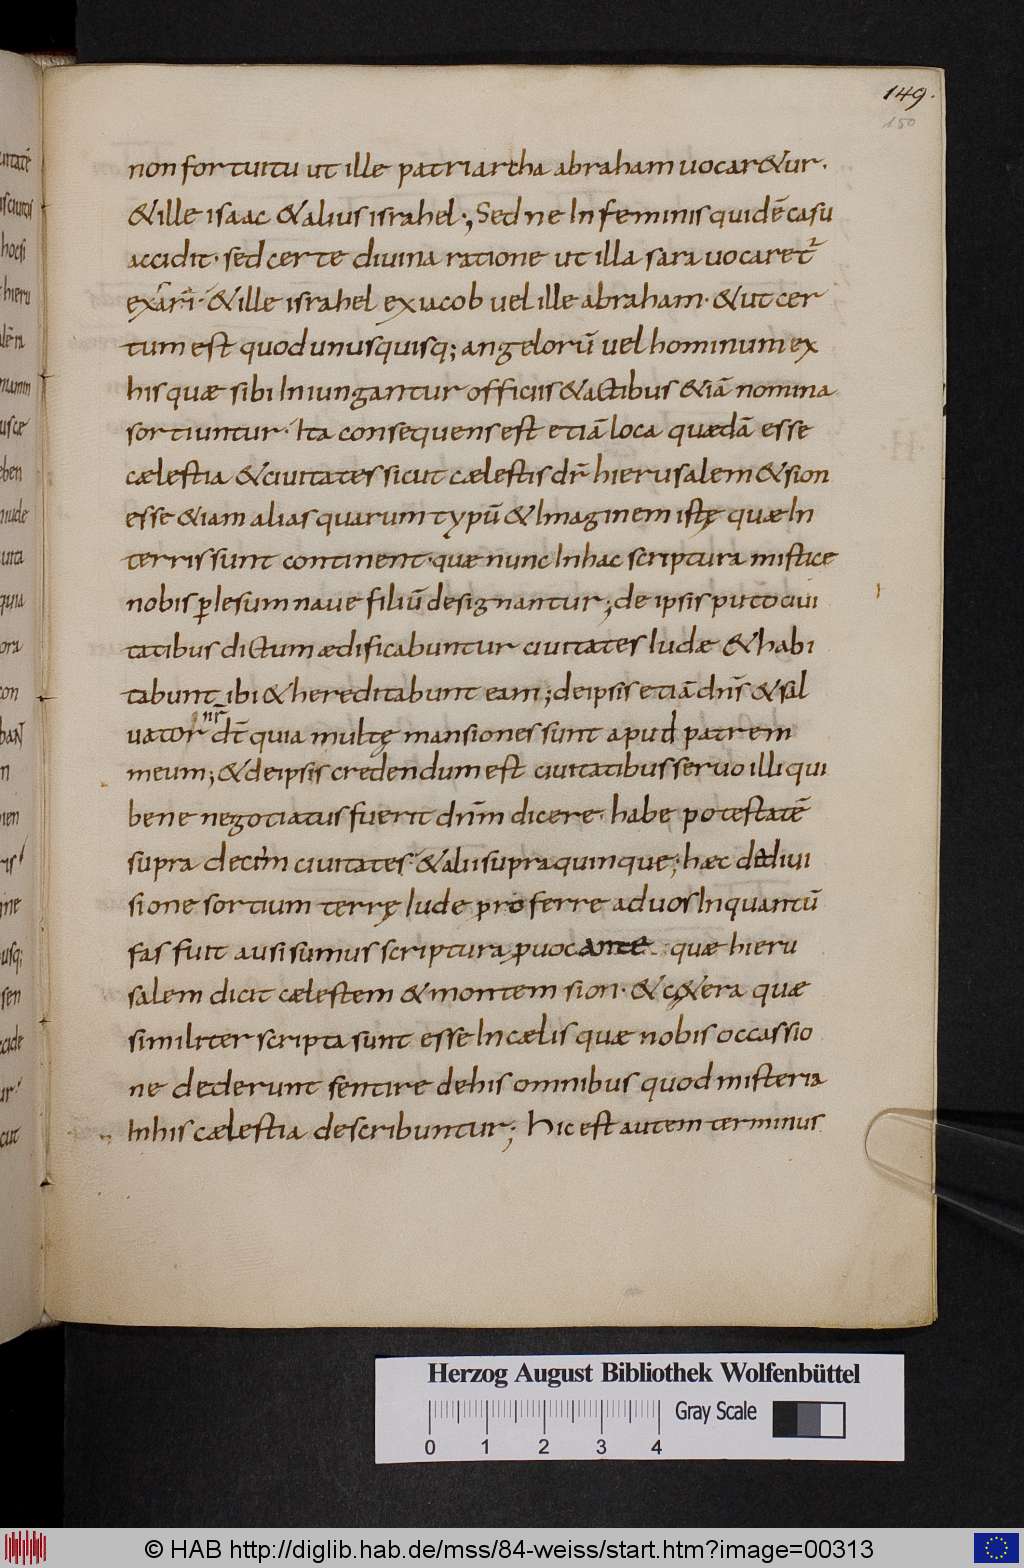 149.
150
non fortuitu ut ille patriarcha abraham uocar&ur·
& ille isaac & alius israhel·, Sed ne In feminis quidē casu
accidit· sed certe diuina ratione ut illa sara uocaret᷑
& ille israhel ex iacob uel ille abraham· & ut cer
tum est quod unusquisq; angelorū uel hominum ex
his quæ sibi Iniungantur officiis & actibus &iā nomina
sortiuntur· Ita consequens est etiā loca quædā esse
cælestia & ciuitates sicut cælestis dr̄ hierusalem & sion
esse &iam alias quarum typū & Imaginem istę quæ In
terris sunt continent· quæ nunc In hac scriptura mistice
nobis ꝑ Iesum naue filiū designantur; de ipsis puto ciui
tatibus dictum ædificabuntur ciuitates Iudæ & habi
tabunt ibi & hereditabunt eam; de ipsis etiā dn̄s & sal
uator nr̄ dt̄ quia multę mansiones sunt apud patrem
meum; & de ipsis credendum est ciuitatibus seruo illi qui
bene negotiatus fuerit dn̄m dicere· habe potestatē
supra decem ciuitates· & alii supra quinque; hæc de diui
sione sortium terrę Iude proferre ad uos Inquantū
fas fuit ausi sumus scriptura ꝓuocante quæ hieru
salem dicit cælestem & montem sion· & c&era quæ
similiter scripta sunt esse In cælis quæ nobis occassio
ne dederunt sentire de his omnibus quod misteria
In his cælestia describuntur; Hic est autem terminus
Herzog August Bibliothek Wolfenbüttel
Gray Scale
0 1 2 3 4
© HAB http://diglib.hab.de/mss/84-weiss/start.htm?image=00313